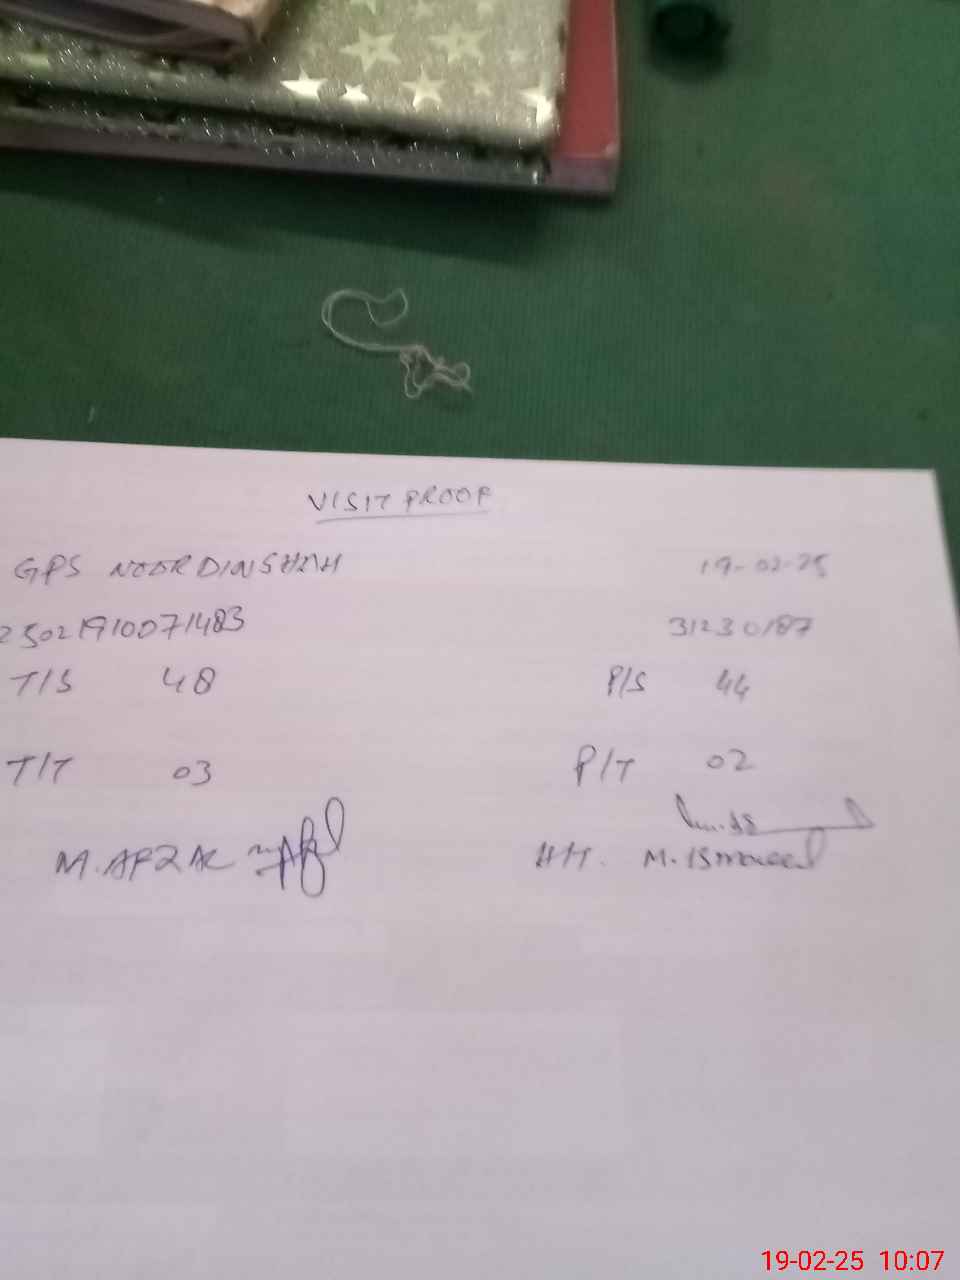 VISIT PROOF
GPS NOOR DIN SHAH 19-02-25
25021910071483 31230187
T/S 48 P/S 44
T/T 03 P/T 02
M. AFZAL HT. M. Ismaeel
19-02-25 10:07